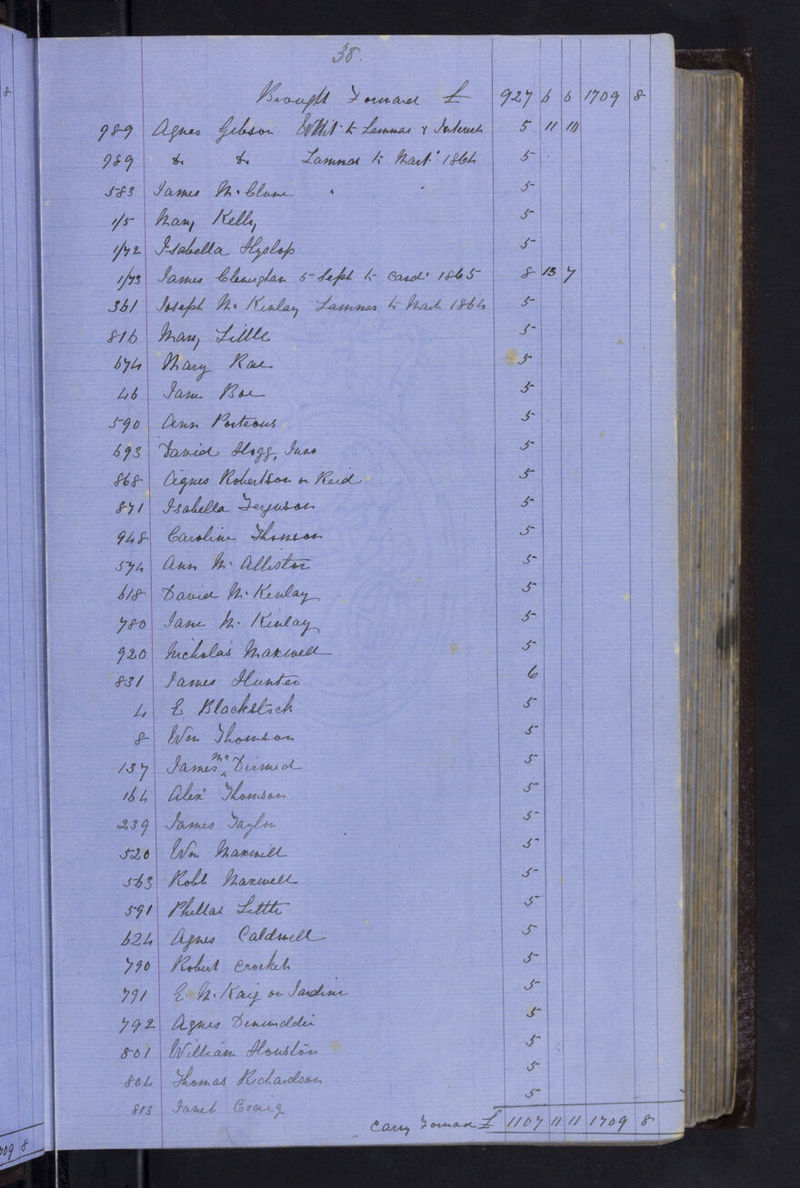 38.
Brought Forward £ 927 6 6 1709 8
989 Agnes Gibson Whit. to Lammas & Interest 5 11 10
989 Do Do Lammas to Mart. 1864 5
583 James Mc. Clune " " 5
1/5 Mary Kelly 5
1/72 Isabella Hyslop 5
1/73 James Clenughan 5 Sept to Cand. 1865 8 13 7
361 Joseph Mc Kinlay Lammas to Mart 1864 5
816 Mary Little 5
674 Mary Rae 5
46 Jane Boe 5
590 Ann Porteous 5
693 David Hogg, Junr 5
868 Agnes Robertson or Reid 5
871 Isabella Ferguson 5
948 Caroline Thomson 5
574 Ann Mc. Allister 5
618 David Mc. Kinlay 5
780 Jane Mc. Kinlay 5
920 Nicholas Maxwell 5
831 James Hunter 6
4 E Blackstock 5
8 Wm Thomson 5
137 James Mc Dirmid 5
164 Alexr Thomson 5
239 James Taylor 5
520 Wm Maxwell 5
563 Robt Maxwell 5
591 Phillas Little 5
624 Agnes Caldwell 5
790 Robert Crocket 5
791 E Mc. Kaig or Jardine 5
792 Agnes 5
801 William Houston 5
804 Thomas Richardson 5
813 Janet Craig 5
Carry Forward £ 1107 11 11 1709 8
8
709 8